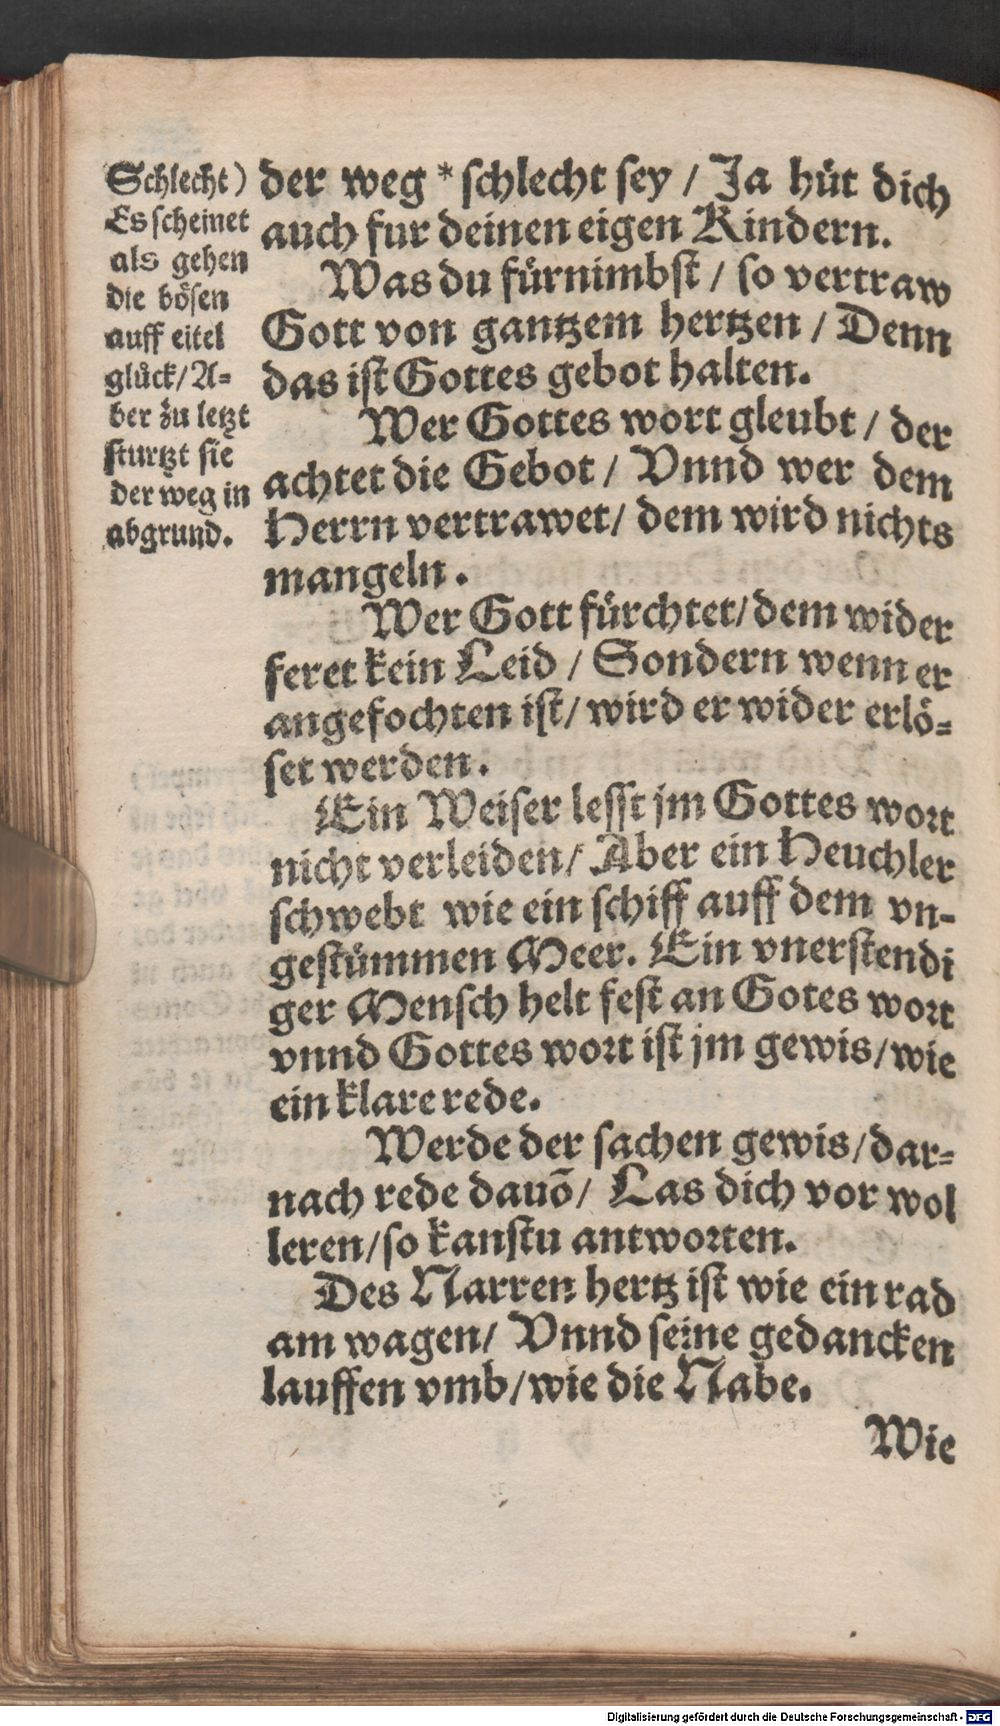 Schlecht)
Es scheinet
als gehen
die bösen
auff eitel
glück/A-
ber zu letzt
sturtzt sie
der weg in
abgrund.
der weg *schlecht sey / Ja hüt dich
auch fur deinen eigen Kindern.
Was du fürnimbst / so vertraw
Gott von gantzem hertzen / Denn
das ist Gottes gebot halten.
Wer Gottes wort gleubt / der
achtet die Gebot / Vnnd wer dem
Herrn vertrawet/ dem wird nichts
mangeln.
Wer Gott fürchtet/dem wider
feret kein Leid / Sondern wenn er
angefochten ist/ wird er wider erlö-
set werden.
Ein Weiser lesst jm Gottes wort
nicht verleiden/ Aber ein Heuchler
schwebt wie ein schiff auff dem vn-
gestümmen Meer. Ein vnerstendi
ger Mensch helt fest an Gotes wort
vnnd Gottes wort ist jm gewis/wie
ein klare rede.
Werde der sachen gewis/dar-
nach rede dauõ/ Las dich vor wol
leren/so kanstu antworten.
Des Narren hertz ist wie ein rad
am wagen/ Vnnd seine gedancken
lauffen vmb/wie die Nabe.
Wie
Digitalisierung gefördert durch die Deutsche Forschungsgemeinschaft - DFG